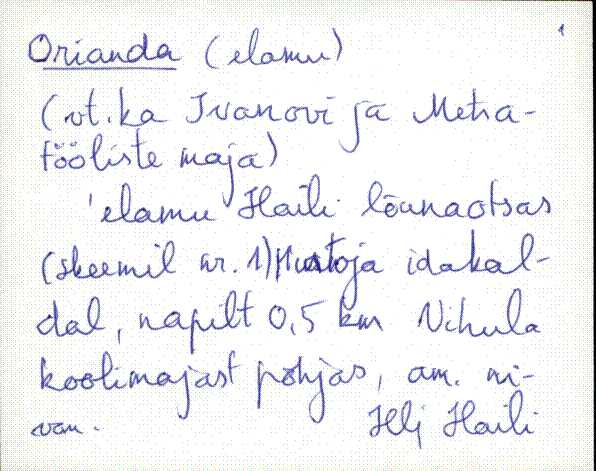 1
Orianda (elamu)
(vt. ka Ivanovi ja Metsa-
tööliste maja)
'elamu Haili lõunaotsas
(skeemil nr. 1) Mustoja idakal-
dal, napilt 0,5 km Vihula
koolimajast põhjas, am. ni-
van. Hlj Haili